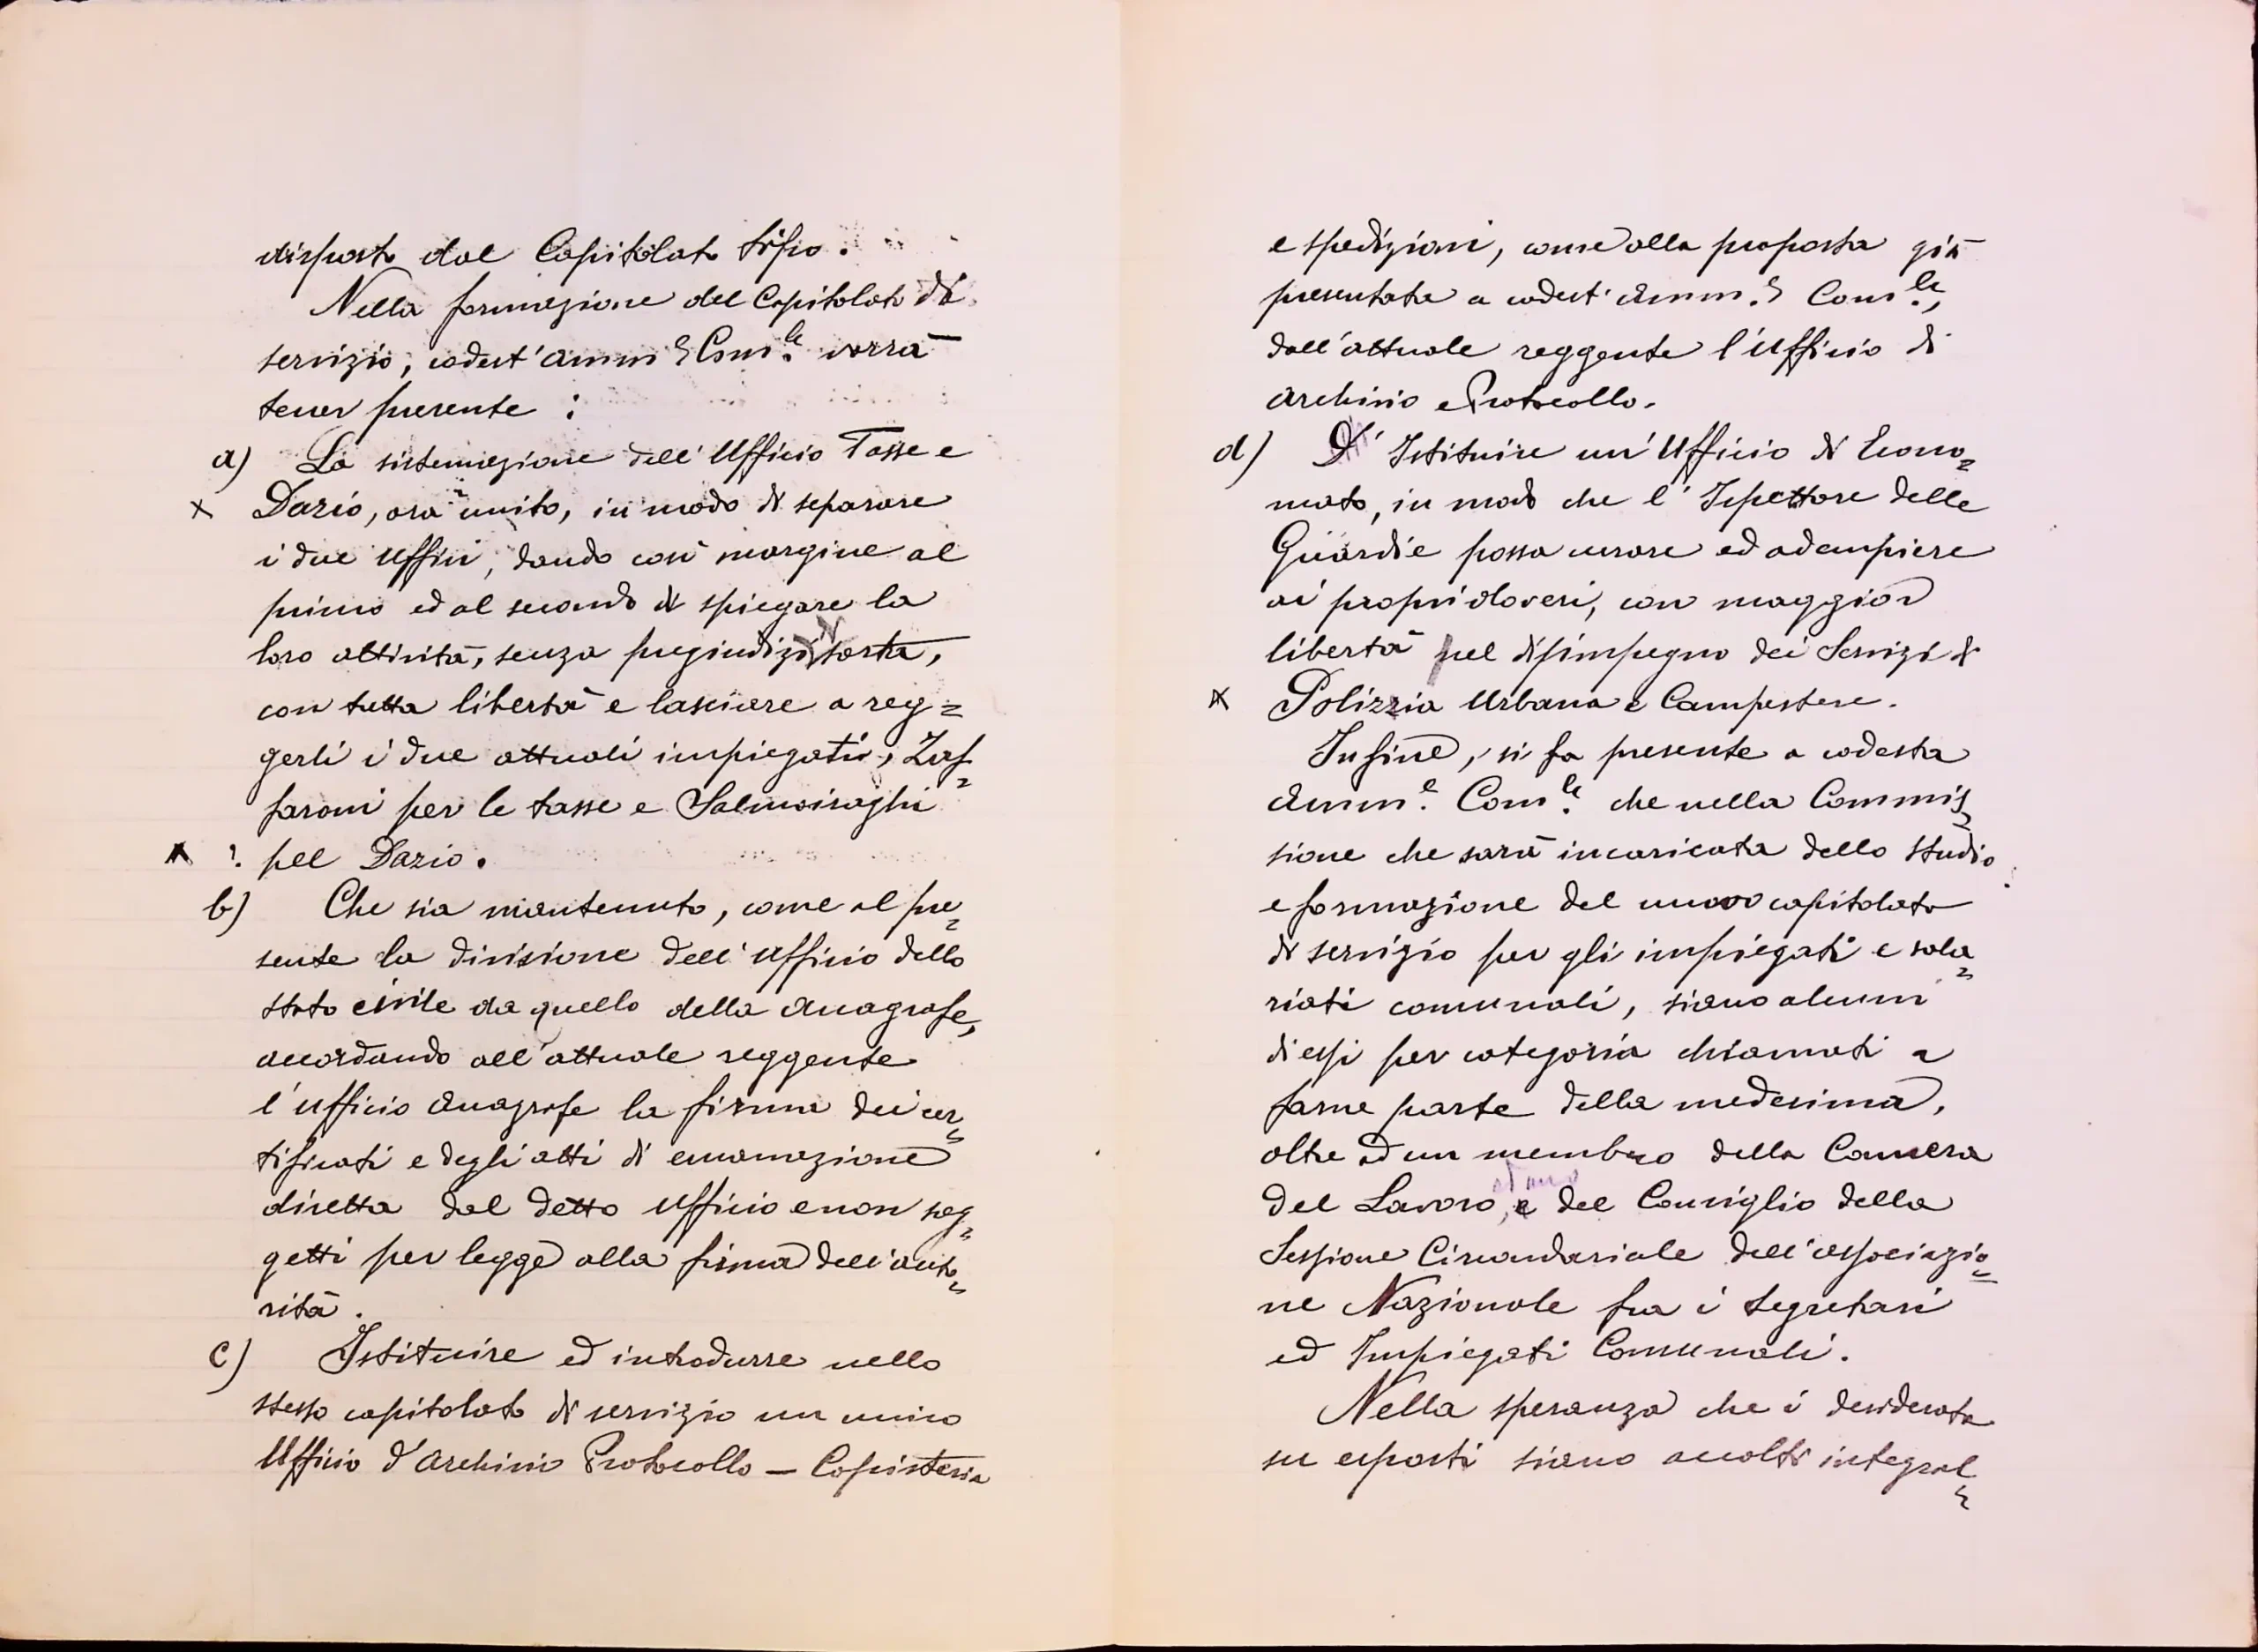 disposto dal Capitolato tipo.
Nella formazione del Capitolato di
servizio, codest'Amm.e Com.le vorrà
tener presente :
a) La sistemazione dell'Ufficio Tasse e
x Dazio, ora unito, in modo di separare
i due Uffici, dando così margine al
primo ed al secondo di spiegare la
loro attività, senza pregiudizi di sorta,
con tutta libertà e lasciare a reg=
gerli i due attuali impiegati, Zaf=
faroni per le tasse e Salmoiraghi
x ? pel Dazio.
b) Che sia mantenuto, come al pre=
sente la divisione dell'Ufficio dello
stato civile da quello della Anagrafe,
accordando all'attuale reggente
l'Ufficio Anagrafe la firma dei cer=
tificati e degli atti di emanazione
diretta dal detto Ufficio e non sog=
getti per legge alla firma dell'auto=
rità.
c) Istituire ed introdurre nello
stesso capitolato di servizio un unico
Ufficio d'Archivio Protocollo – Copisteria
e spedizioni, come alla proposta già
presentata a codest'Amm.e Com.le,
dall'attuale reggente l'Ufficio di
Archivio e Protocollo.
d) D' Istituire un'Ufficio di Econo=
mato, in modo che l'Ispettore delle
Guardie possa curare ed adempiere
ai propri doveri, con maggior
libertà pel disimpegno dei Servizi di
x Polizzia Urbana e Campestere.
Infine, si fa presente a codesta
Amm.e Com.le che nella Commis=
sione che sarà incaricata dello studio
e formazione del nuovo capitolato
di servizio per gli impiegati e sala=
riati comunali, siano alcuni
di essi per categoria chiamati a
farne parte della medesima,
oltre ad un membro della Camera
ed uno
del Lavoro, e del Consiglio della
Sessione Circondariale dell'Associazio=
ne Nazionale fra i Segretari
ed Impiegati Comunali.
Nella speranza che i desiderata
su esposti siano accolti integral=